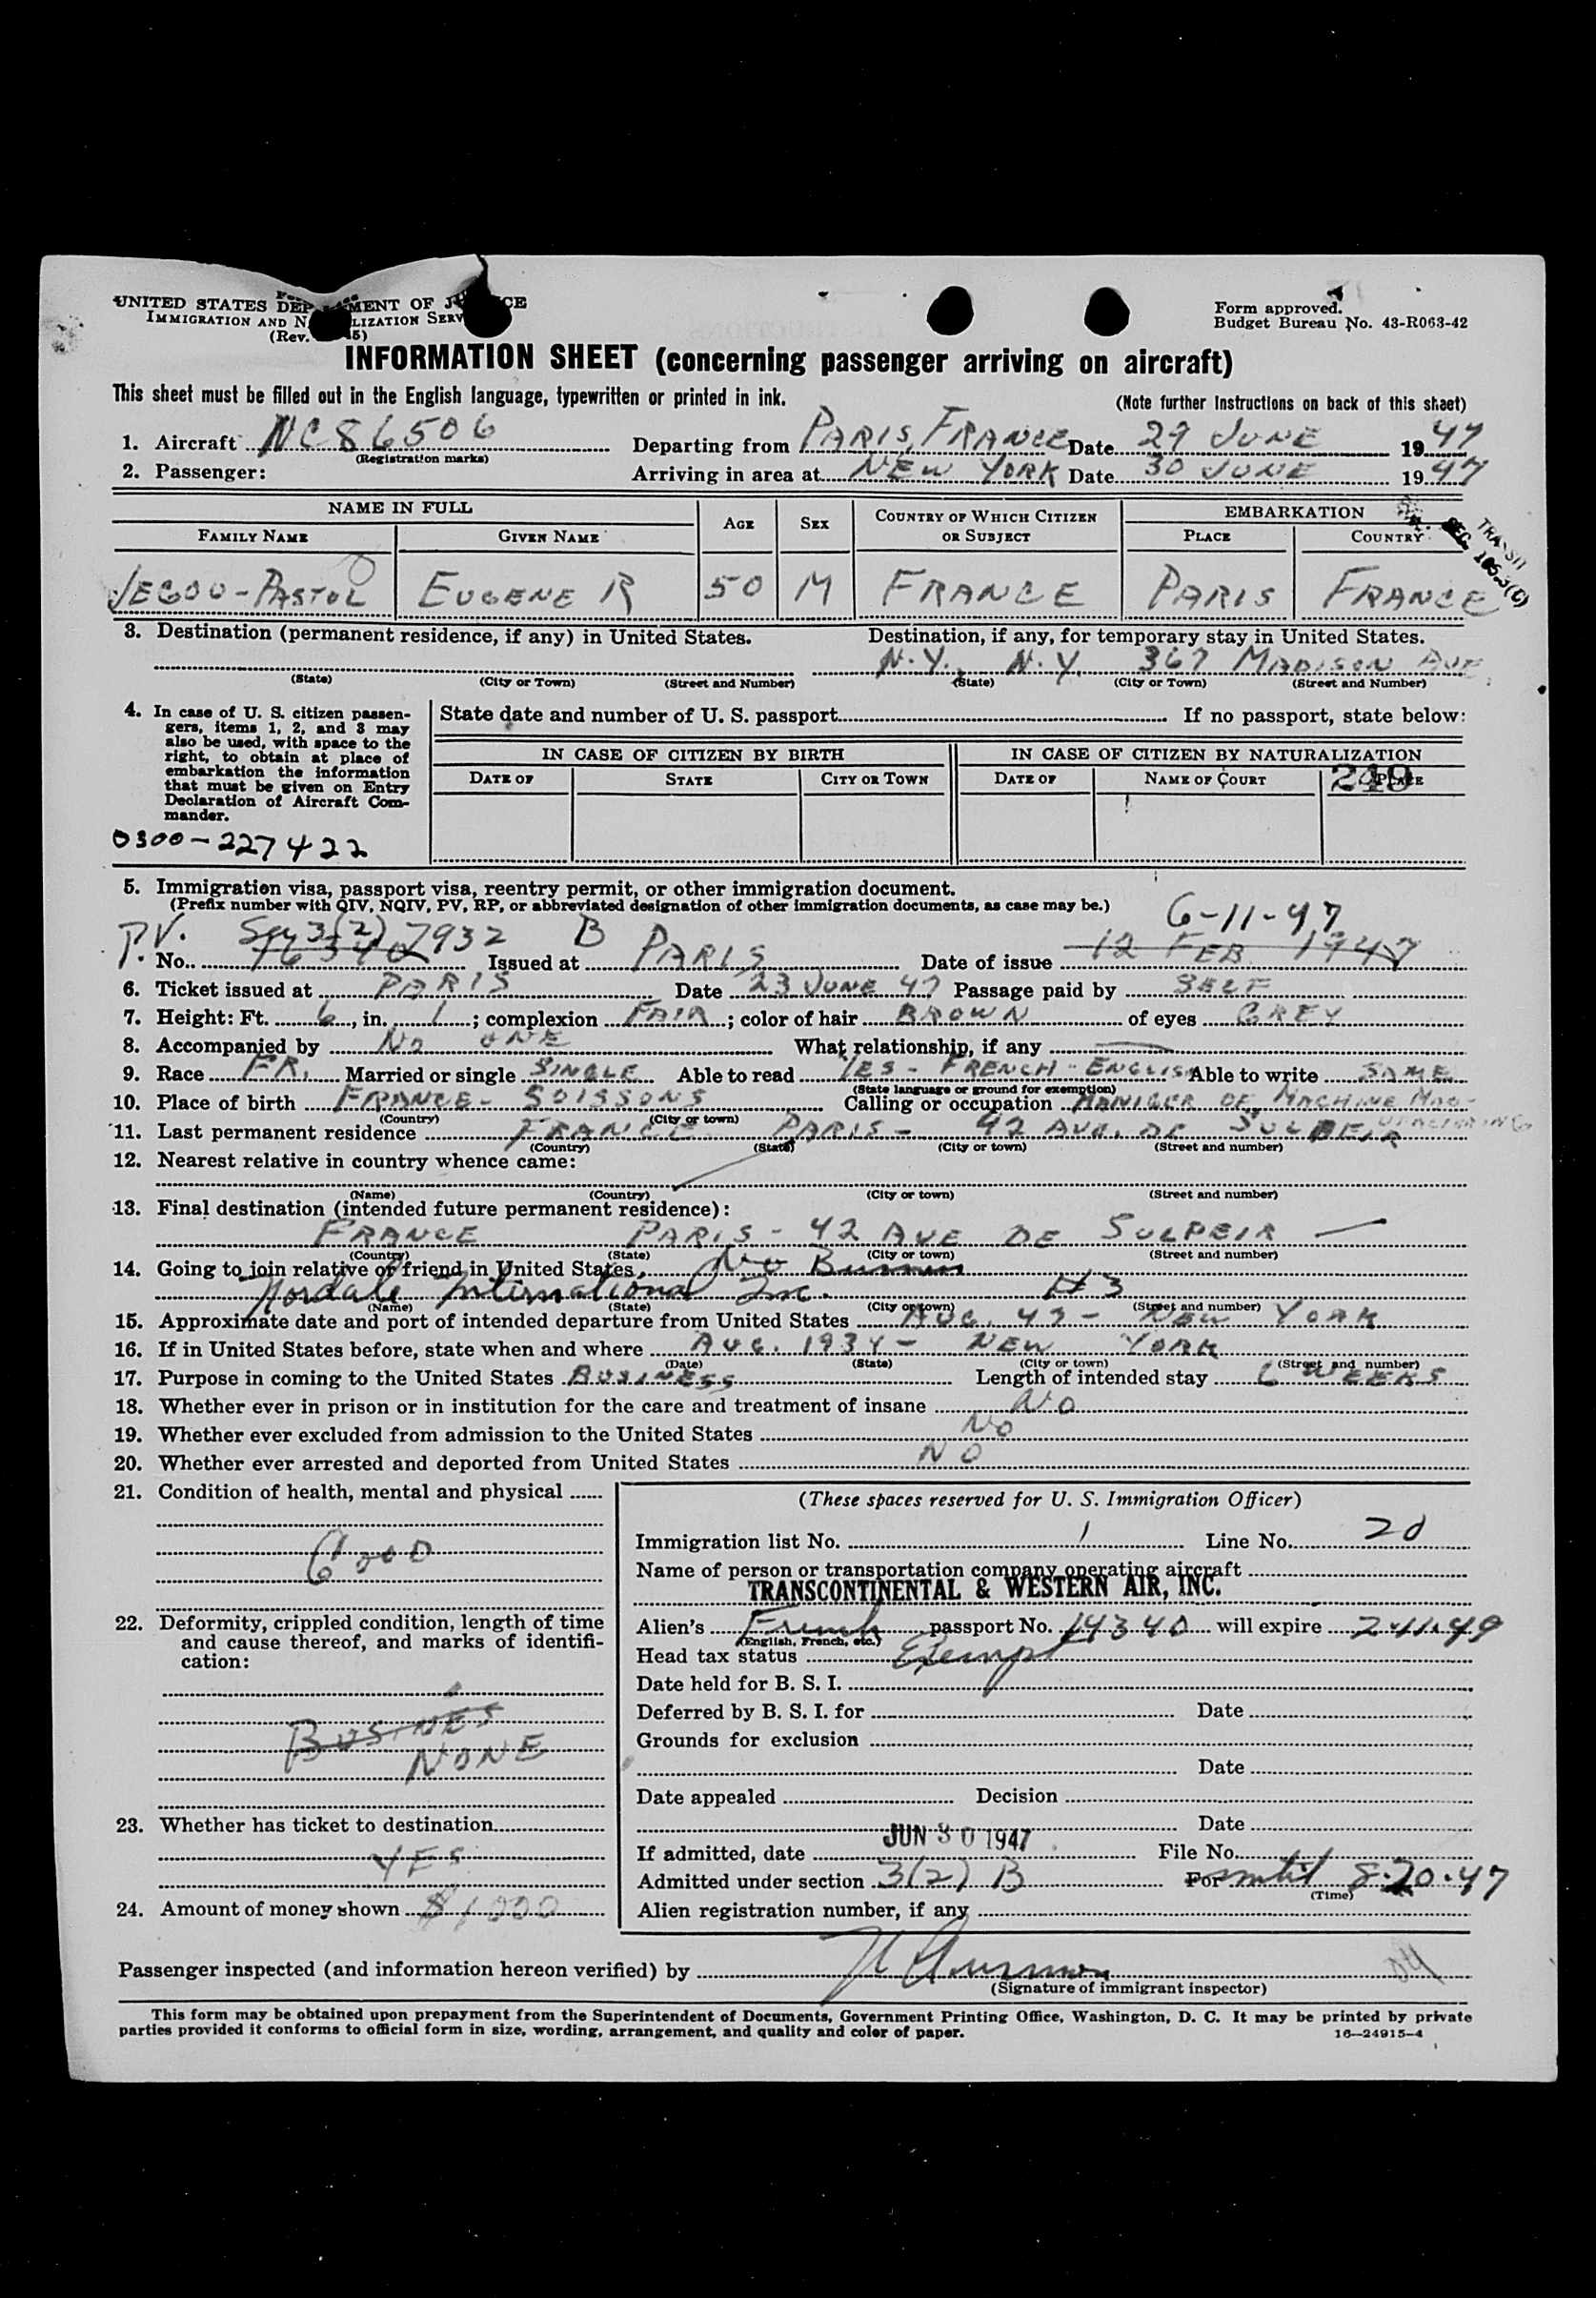 UNITED STATES DEP MENT OF J CE
IMMIGRATION AND N LIZATION SERV
(Rev. 5)
Form approved.
Budget Bureau No. 43-R063-42
INFORMATION SHEET (concerning passenger arriving on aircraft)
This sheet must be filled out in the English language, typewritten or printed in ink.
(Note further instructions on back of this sheet)
1. Aircraft NC86506 Departing from PARIS, FRANCE Date 29 JUNE 1947
(Registration marks)
2. Passenger: Arriving in area at NEW YORK Date 30 JUNE 1947
NAME IN FULL AGE SEX COUNTRY OF WHICH CITIZEN OR SUBJECT EMBARKATION
FAMILY NAME GIVEN NAME PLACE COUNTRY
TRANSIT
SEC. 165.3(C)
JEGOU-PASTOL EUGENE R 50 M FRANCE PARIS FRANCE
3. Destination (permanent residence, if any) in United States. Destination, if any, for temporary stay in United States.
N.Y., N.Y. 367 MADISON AVE.
(State) (City or Town) (Street and Number) (State) (City or Town) (Street and Number)
4. In case of U. S. citizen passen-
gers, items 1, 2, and 3 may
also be used, with space to the
right, to obtain at place of
embarkation the information
that must be given on Entry
Declaration of Aircraft Com-
mander.
0300-227422
State date and number of U. S. passport If no passport, state below:
IN CASE OF CITIZEN BY BIRTH IN CASE OF CITIZEN BY NATURALIZATION
DATE OF STATE CITY OR TOWN DATE OF NAME OF COURT PLACE
249
5. Immigration visa, passport visa, reentry permit, or other immigration document.
(Prefix number with QIV, NQIV, PV, RP, or abbreviated designation of other immigration documents, as case may be.)
6-11-47
P.V. 3(2) 7932 B
No. Issued at PARIS Date of issue 12 FEB 1947
6. Ticket issued at PARIS Date 23 JUNE 47 Passage paid by SELF
7. Height: Ft. 6, in. 1; complexion FAIR; color of hair BROWN of eyes GREY
8. Accompanied by NO ONE What relationship, if any
9. Race FR. Married or single SINGLE Able to read YES - FRENCH - ENGLISH Able to write SAME
(State language or ground for exemption)
10. Place of birth FRANCE - SOISSONS Calling or occupation MANIGER OF MACHINE
(Country) (City or town)
11. Last permanent residence FRANCE PARIS - 42 AVE. DE SULPEIR
(Country) (State) (City or town) (Street and number)
12. Nearest relative in country whence came:
(Name) (Country) (City or town) (Street and number)
13. Final destination (intended future permanent residence):
FRANCE PARIS - 42 AVE DE SULPEIR
(Country) (State) (City or town) (Street and number)
14. Going to join relative or friend in United States, No Business
Nordale International Inc. #3
(Name) (State) (City or town) (Street and number)
15. Approximate date and port of intended departure from United States AUG. 47 - NEW YORK
16. If in United States before, state when and where AUG. 1934 - NEW YORK
(Date) (State) (City or town) (Street and number)
17. Purpose in coming to the United States BUSINESS Length of intended stay 6 WEEKS
18. Whether ever in prison or in institution for the care and treatment of insane NO
19. Whether ever excluded from admission to the United States NO
20. Whether ever arrested and deported from United States NO
21. Condition of health, mental and physical
GOOD
22. Deformity, crippled condition, length of time
and cause thereof, and marks of identifi-
cation:
BUSINES
NONE
23. Whether has ticket to destination
YES
24. Amount of money shown $1000
(These spaces reserved for U. S. Immigration Officer)
Immigration list No. 1 Line No. 20
Name of person or transportation company operating aircraft
TRANSCONTINENTAL & WESTERN AIR, INC.
Alien's French passport No. 14340 will expire 2-11-49
(English, French, etc.)
Head tax status Exempt
Date held for B. S. I.
Deferred by B. S. I. for Date
Grounds for exclusion
Date
Date appealed Decision
Date
If admitted, date JUN 30 1947 File No.
Admitted under section 3(2) B For until 8-20-47
(Time)
Alien registration number, if any
Passenger inspected (and information hereon verified) by
(Signature of immigrant inspector)
This form may be obtained upon prepayment from the Superintendent of Documents, Government Printing Office, Washington, D. C. It may be printed by private
parties provided it conforms to official form in size, wording, arrangement, and quality and color of paper. 16-24915-4